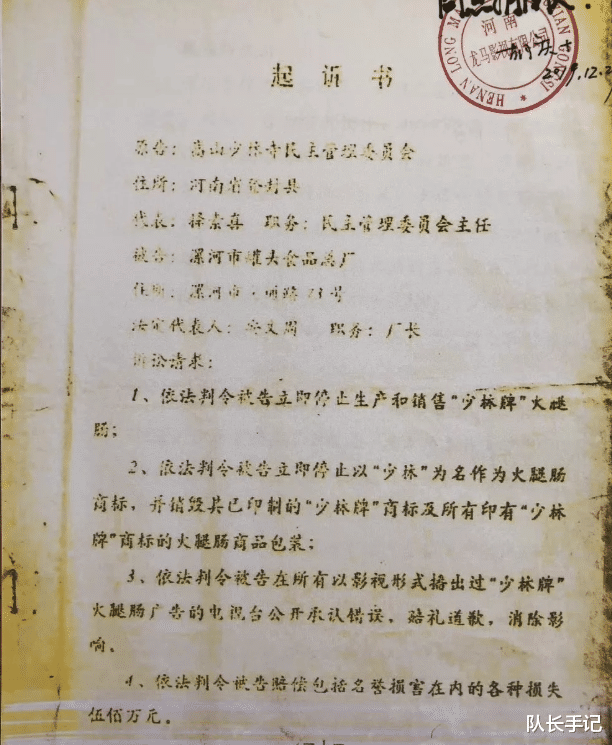 河南
龙马影视有限公司
HENAN LONG M
起诉书
原告：嵩山少林寺民主管理委员会
住所：河南省登封县
代表：释素喜 职务：民主管理委员会主任
被告：漯河市罐头食品总厂
住所：漯河市 路73号
法定代表人：栾文周 职务：厂长
诉讼请求：
1、依法判令被告立即停止生产和销售“少林牌”火腿
肠；
2、依法判令被告立即停止以“少林”为名作为火腿肠
商标，并销毁其已印制的“少林牌”商标及所有印有“少林
牌”商标的火腿肠商品包装；
3、依法判令被告在所有以影视形式播出过“少林牌”
火腿肠广告的电视台公开承认错误，赔礼道歉，消除影
响。
4、依法判令被告赔偿包括名誉损害在内的各种损失
伍佰万元。
—1—
队长手记